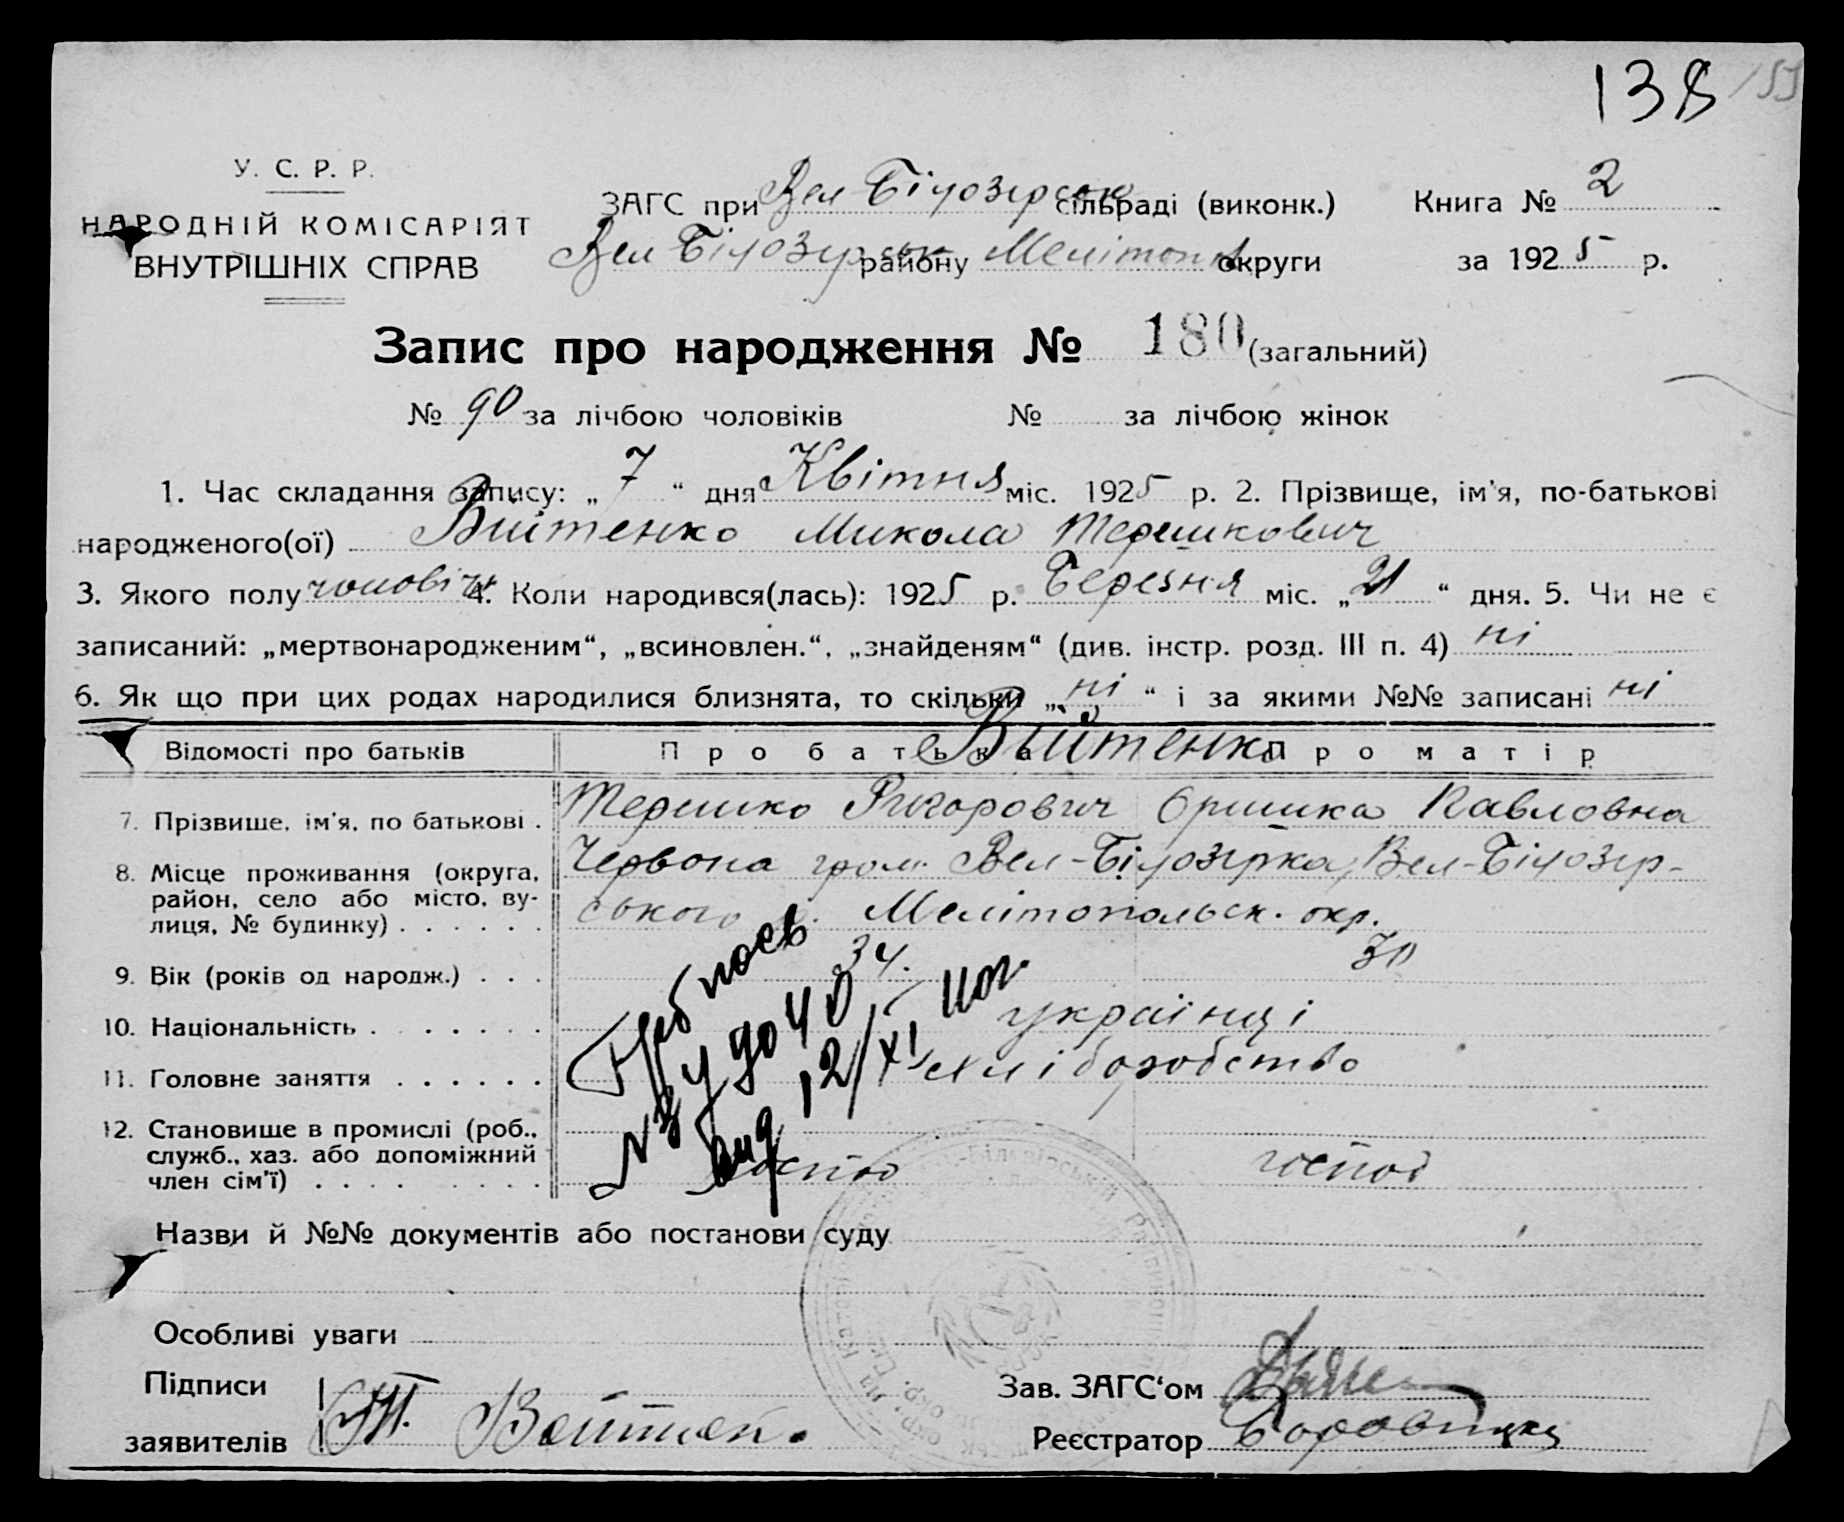 138
У. С. Р. Р.
НАРОДНІЙ КОМІСАРІЯТ
ВНУТРІШНІХ СПРАВ
ЗАГС при Вел Білозірськ сільраді (виконк.) Книга № 2
Вел Білозірськ району Мелітоп округи за 1925 р.
Запис про народження № 180 (загальний)
№ 90 за лічбою чоловіків № за лічбою жінок
1. Час складання запису: „ 7 “ дня Квітня міс. 1925 р. 2. Прізвище, ім'я, по-батькові
народженого(ої) Війтенко Микола Терешкович
3. Якого полу чоловіч 4. Коли народився(лась): 1925 р. Березня міс. „ 21 “ дня. 5. Чи не є
записаний: „мертвонародженим“, „всиновлен.“, „знайденям“ (див. інстр. розд. III п. 4) ні
6. Як що при цих родах народилися близнята, то скільки „ ні “ і за якими №№ записані ні
Відомості про батьків Про батька Війтенко Про матір
7. Прізвище, ім'я, по батькові . Терешко Григорович Оришка Павловна
8. Місце проживання (округа, Червона гром. Вел-Білозірка, Вел-Білозір-
район, село або місто, ву-
лиця, № будинку) . . . . . . ського р. Мелітопольск. окр.
9. Вік (років од народж.) . . . 34. 30
10. Національність . . . . . . . українці
11. Головне заняття . . . . . . хліборобство
12. Становище в промислі (роб.,
служб., хаз. або допоміжний
член сім'ї) . . . . . . . . . госпо господ
12/XI
Назви й №№ документів або постанови суду
Особливі уваги
Підписи Зав. ЗАГС‘ом
заявителів Т. Войтенк. Реєстратор